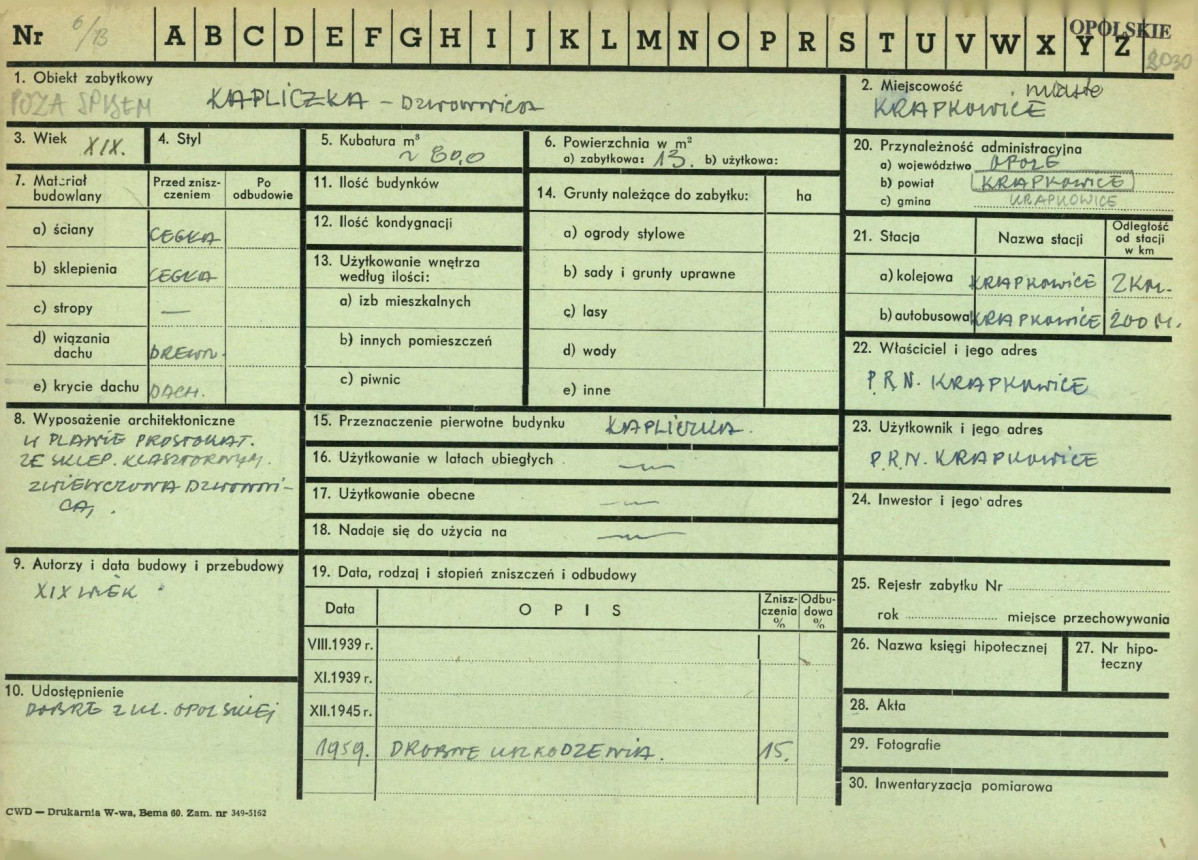 Nr 6/13 A B C D E F G H I J K L M N O P R S T U V W X Y Z
OPOLSKIE
2030
1. Obiekt zabytkowy
POZA SPISEM KAPLICZKA – DZWONNICA
2. Miejscowość miasto
KRAPKOWICE
3. Wiek XIX.
4. Styl
5. Kubatura m³
~ 80,0
6. Powierzchnia w m²
a) zabytkowa: 13. b) użytkowa:
20. Przynależność administracyjna
a) województwo OPOLE
b) powiat KRAPKOWICE
c) gmina KRAPKOWICE
7. Materiał budowlany
Przed zniszczeniem
Po odbudowie
a) ściany CEGŁA
b) sklepienia CEGŁA
c) stropy —
d) wiązania dachu DREWN.
e) krycie dachu DACH.
11. Ilość budynków
12. Ilość kondygnacji
13. Użytkowanie wnętrza
według ilości:
a) izb mieszkalnych
b) innych pomieszczeń
c) piwnic
14. Grunty należące do zabytku: ha
a) ogrody stylowe
b) sady i grunty uprawne
c) lasy
d) wody
e) inne
21. Stacja Nazwa stacji Odległość od stacji w km
a) kolejowa KRAPKOWICE 2 KM.
b) autobusowa KRAPKOWICE 200 M.
22. Właściciel i jego adres
P.R.N. KRAPKOWICE
8. Wyposażenie architektoniczne
W PLANIE PROSTOKĄT.
ZE SKLEP. KLASZTORNYM.
ZWIEŃCZONA DZWONNI-
CĄ,
15. Przeznaczenie pierwotne budynku KAPLICZKA.
16. Użytkowanie w latach ubiegłych —
17. Użytkowanie obecne —
18. Nadaje się do użycia na —
23. Użytkownik i jego adres
P.R.N. KRAPKOWICE
24. Inwestor i jego adres
9. Autorzy i data budowy i przebudowy
XIX WIEK
10. Udostępnienie
DOBRE Z UL. OPOLSKIEJ
19. Data, rodzaj i stopień zniszczeń i odbudowy
Data OPIS Zniszczenia % Odbudowa %
VIII.1939 r.
XI.1939 r.
XII.1945 r.
1959. DROBNE USZKODZENIA. 15.
25. Rejestr zabytku Nr
rok miejsce przechowywania
26. Nazwa księgi hipotecznej
27. Nr hipoteczny
28. Akta
29. Fotografie
30. Inwentaryzacja pomiarowa
CWD — Drukarnia W-wa, Bema 60. Zam. nr 349-5162